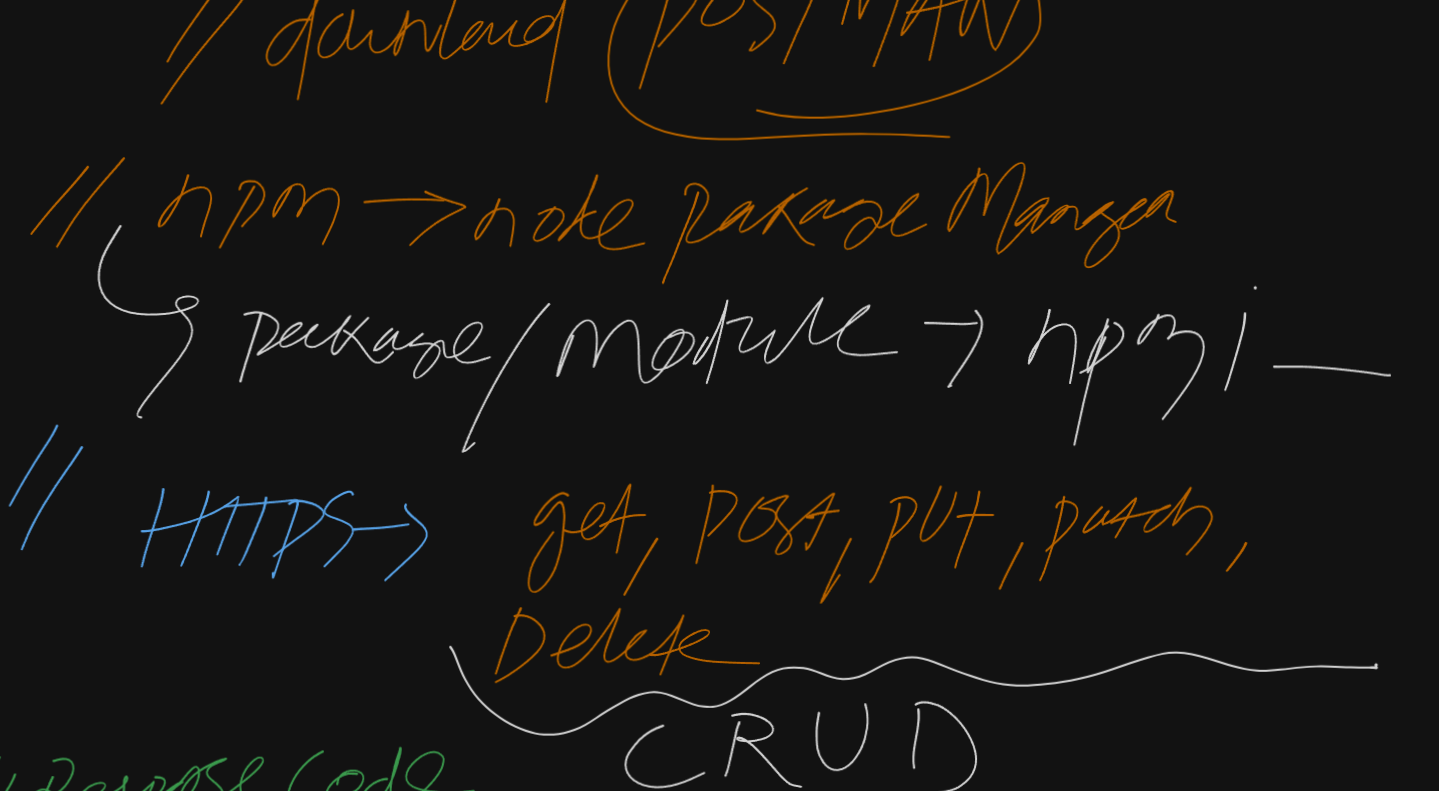 // download POSTMAN
// npm → note package Manager
package/module → npm i __
// HTTPS → get, post, PUT, patch,
Delete
CRUD
// Response Code